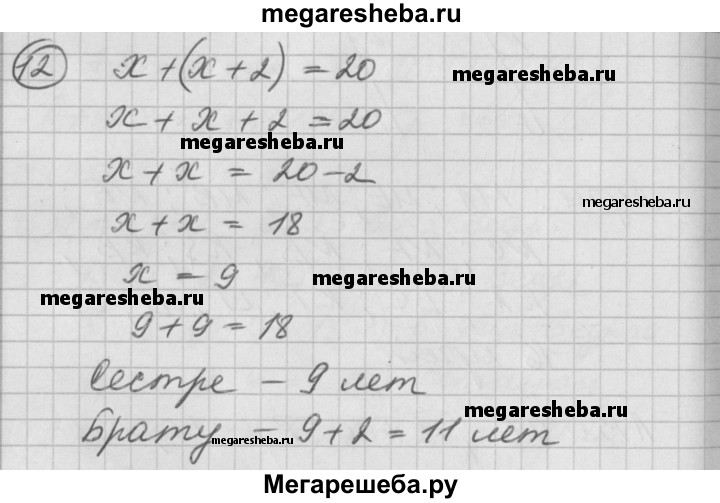 megaresheba.ru
12 x + (x + 2) = 20
megaresheba.ru
x + x + 2 = 20
megaresheba.ru
x + x = 20 - 2
megaresheba.ru
x + x = 18
x = 9
megaresheba.ru
megaresheba.ru
9 + 9 = 18
Сестре - 9 лет
megaresheba.ru
Брату - 9 + 2 = 11 лет
megaresheba.ru
Мегарешеба.ру